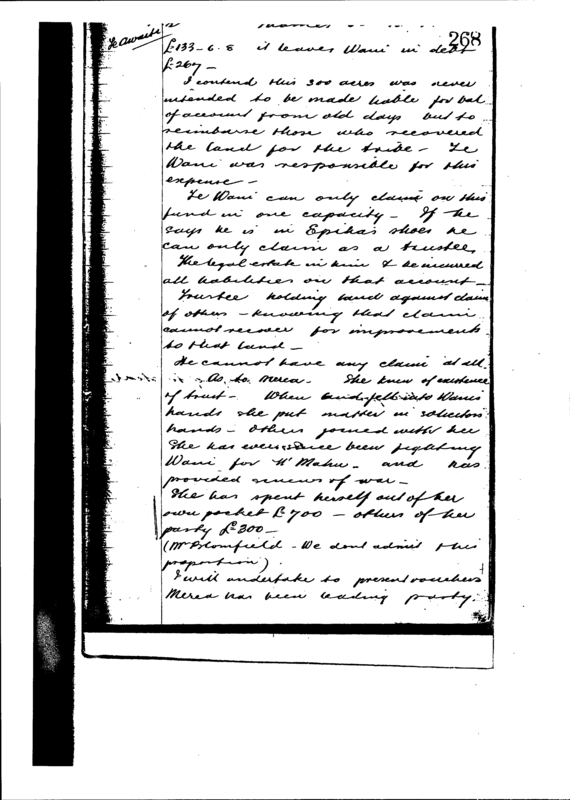 268
Te Awaite
£133-6.8 it leaves Wani in debt
£267-
I contend this 300 acres was never
intended to be made liable for bal
of account from old days but to
reimburse those who recovered
the land for the tribe - Te
Wani was responsible for this
expense -
Te Wani can only claim on this
fund in one capacity - If he
says he is in Epiha's shoes he
can only claim as a trustee,
The legal estate in him & he incurred
all liabilities on that account -
Trustee holding land against claim
of others - knowing that claim
cannot recover for improvements
to that land -
He cannot have any claim at all.
As to Merea - She knew of existence
of trust - When land fell into Wanis
hands she put matter in solicitors
hands - Others joined with her
She has ever since been fighting
Wani for H' Mahu - and has
provided sinews of war -
She has spent herself out of her
own pocket £700 - others of her
party £300 -
(Mr Blomfield - We dont admit this
proportion).
I will undertake to present vouchers
Merea has been leading party.